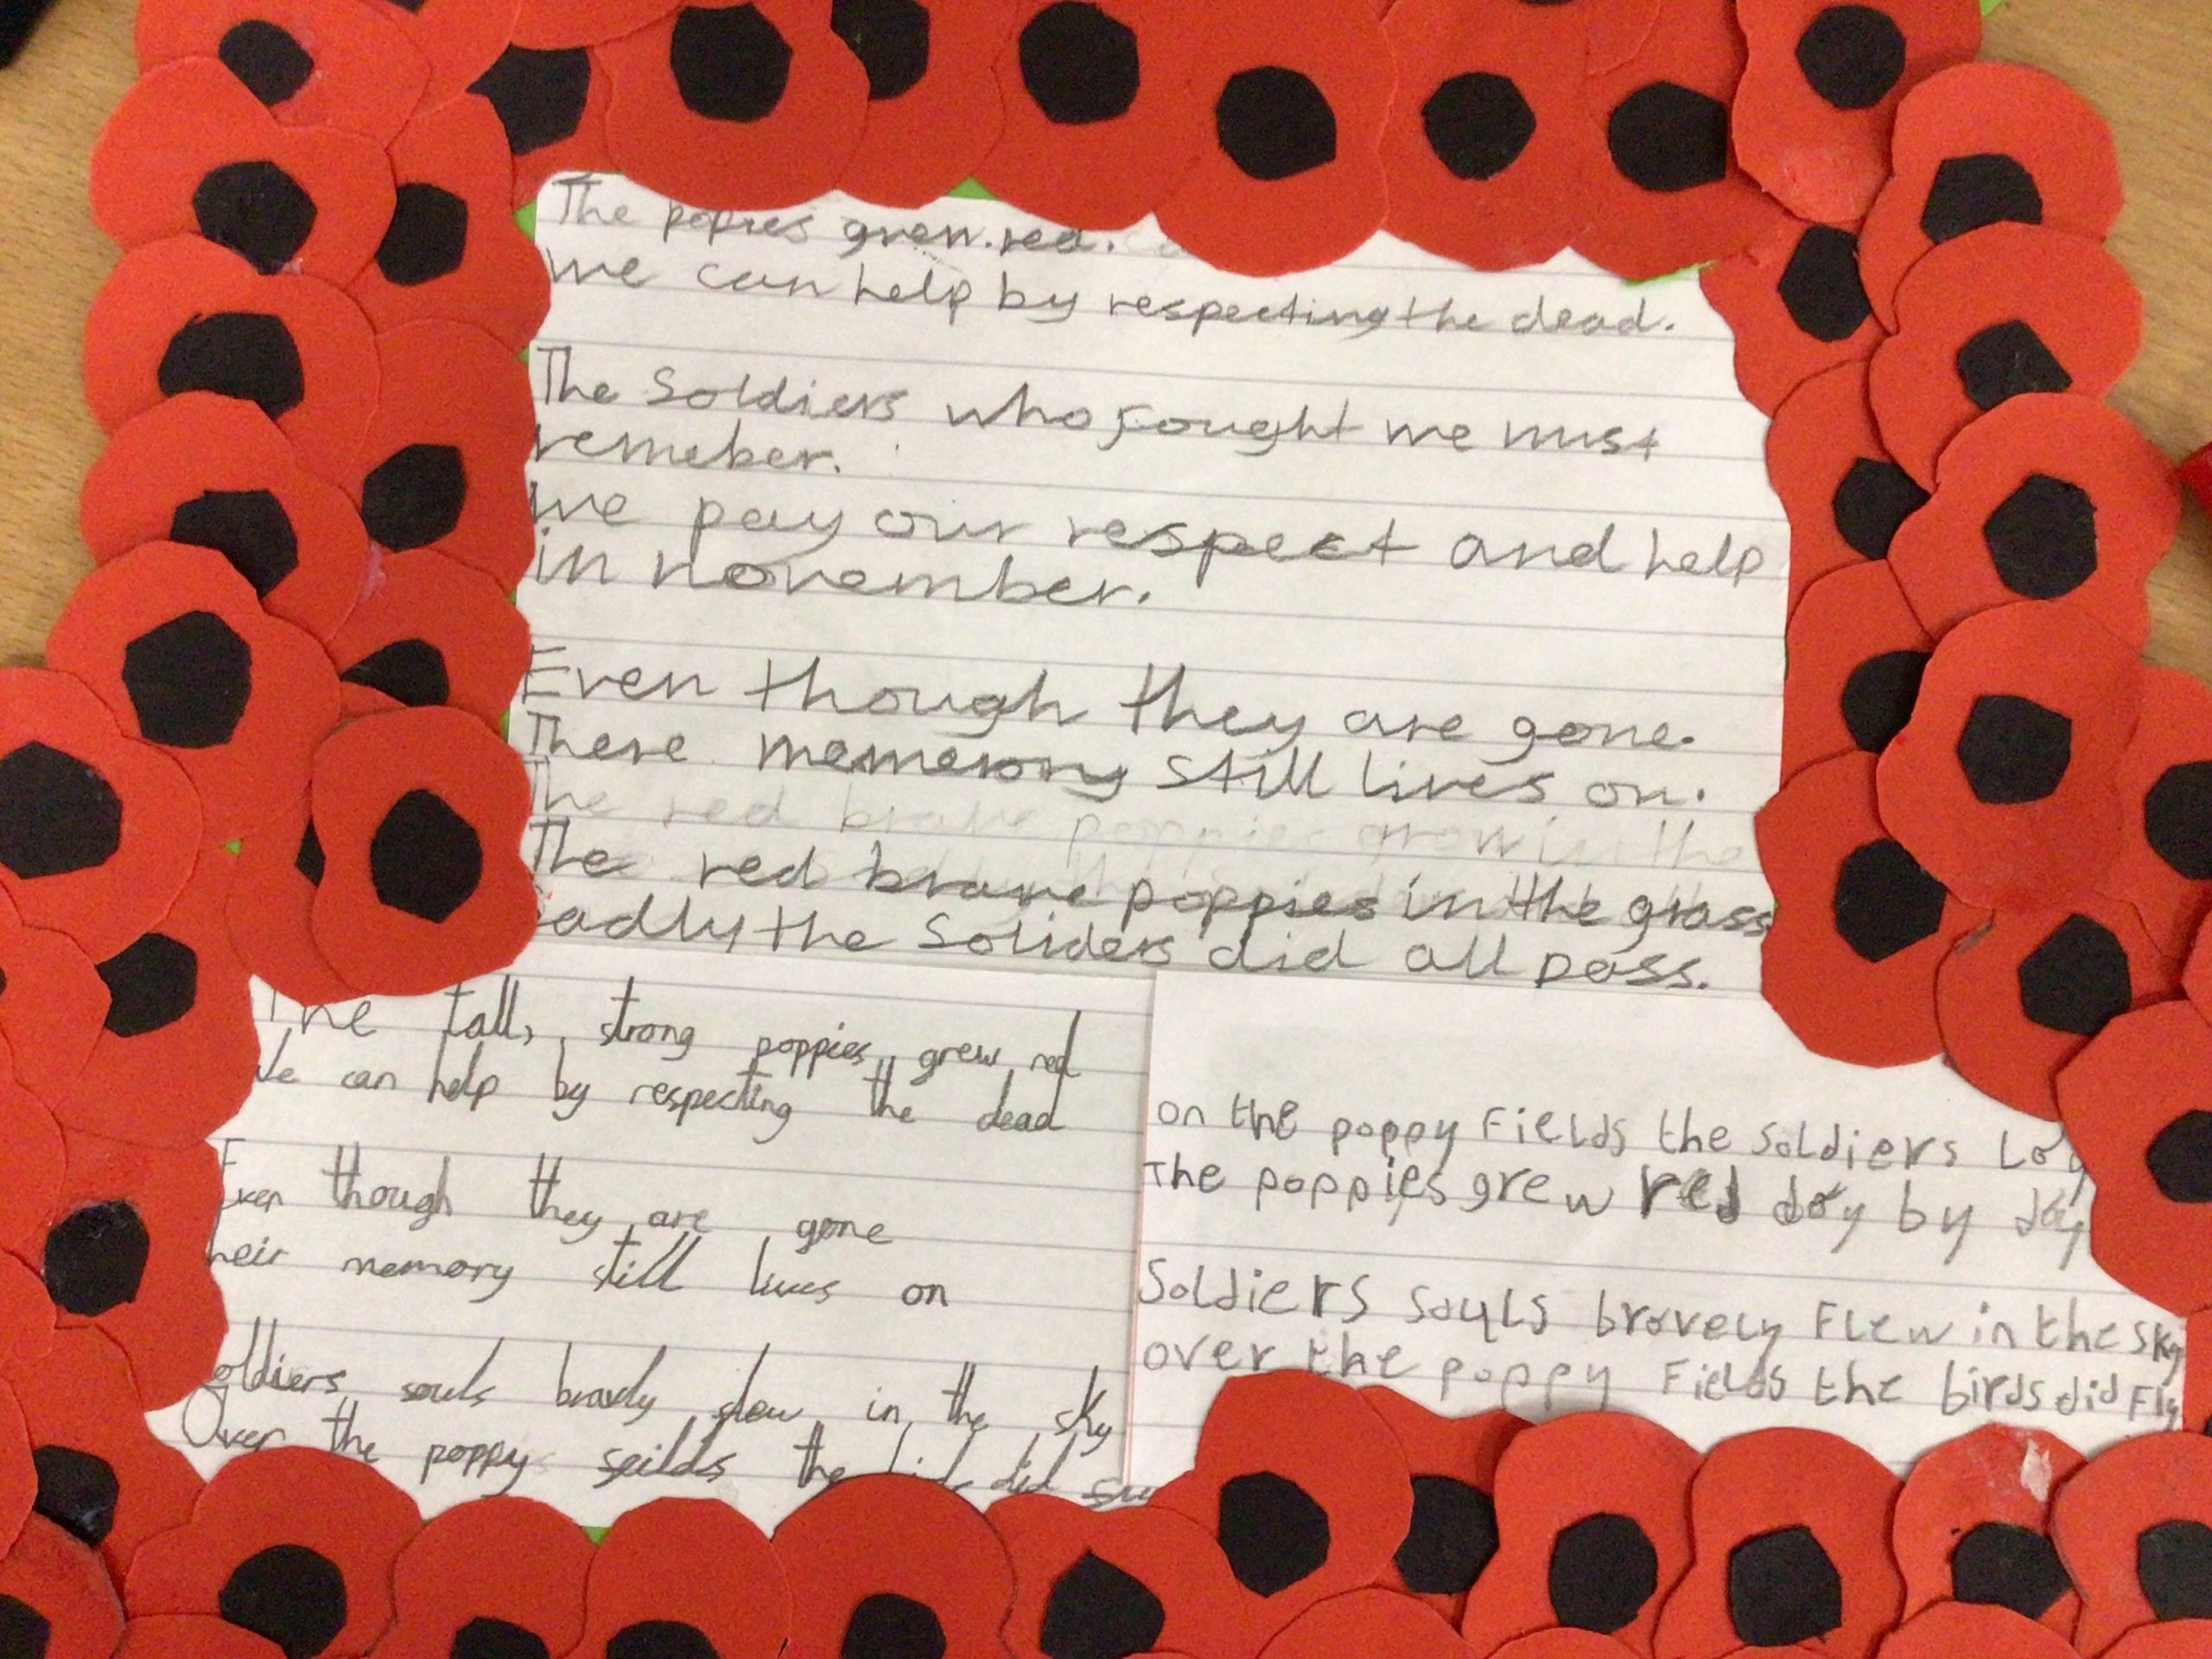 The popies grew red.
We can help by respecting the dead.
The Soldiers who fought we must
remeber.
we pay our respect and help
in november.
Even though they are gone.
There memerony still lives on.
The red brave poppies grow in the
The red brave poppies in the grass
adly the Soliders did all pass.
The tall, strong poppies grew red
We can help by respecting the dead
Even though they are gone
heir memory still lives on
oldiers souls bravly slow in the sky
Over the poppy seilds the did
on the poppy Fields the Soldiers Lay
The poppies grew red day by day
Soldiers souls bravely Flew in the sky
over the poppy Fields the birds did Fly